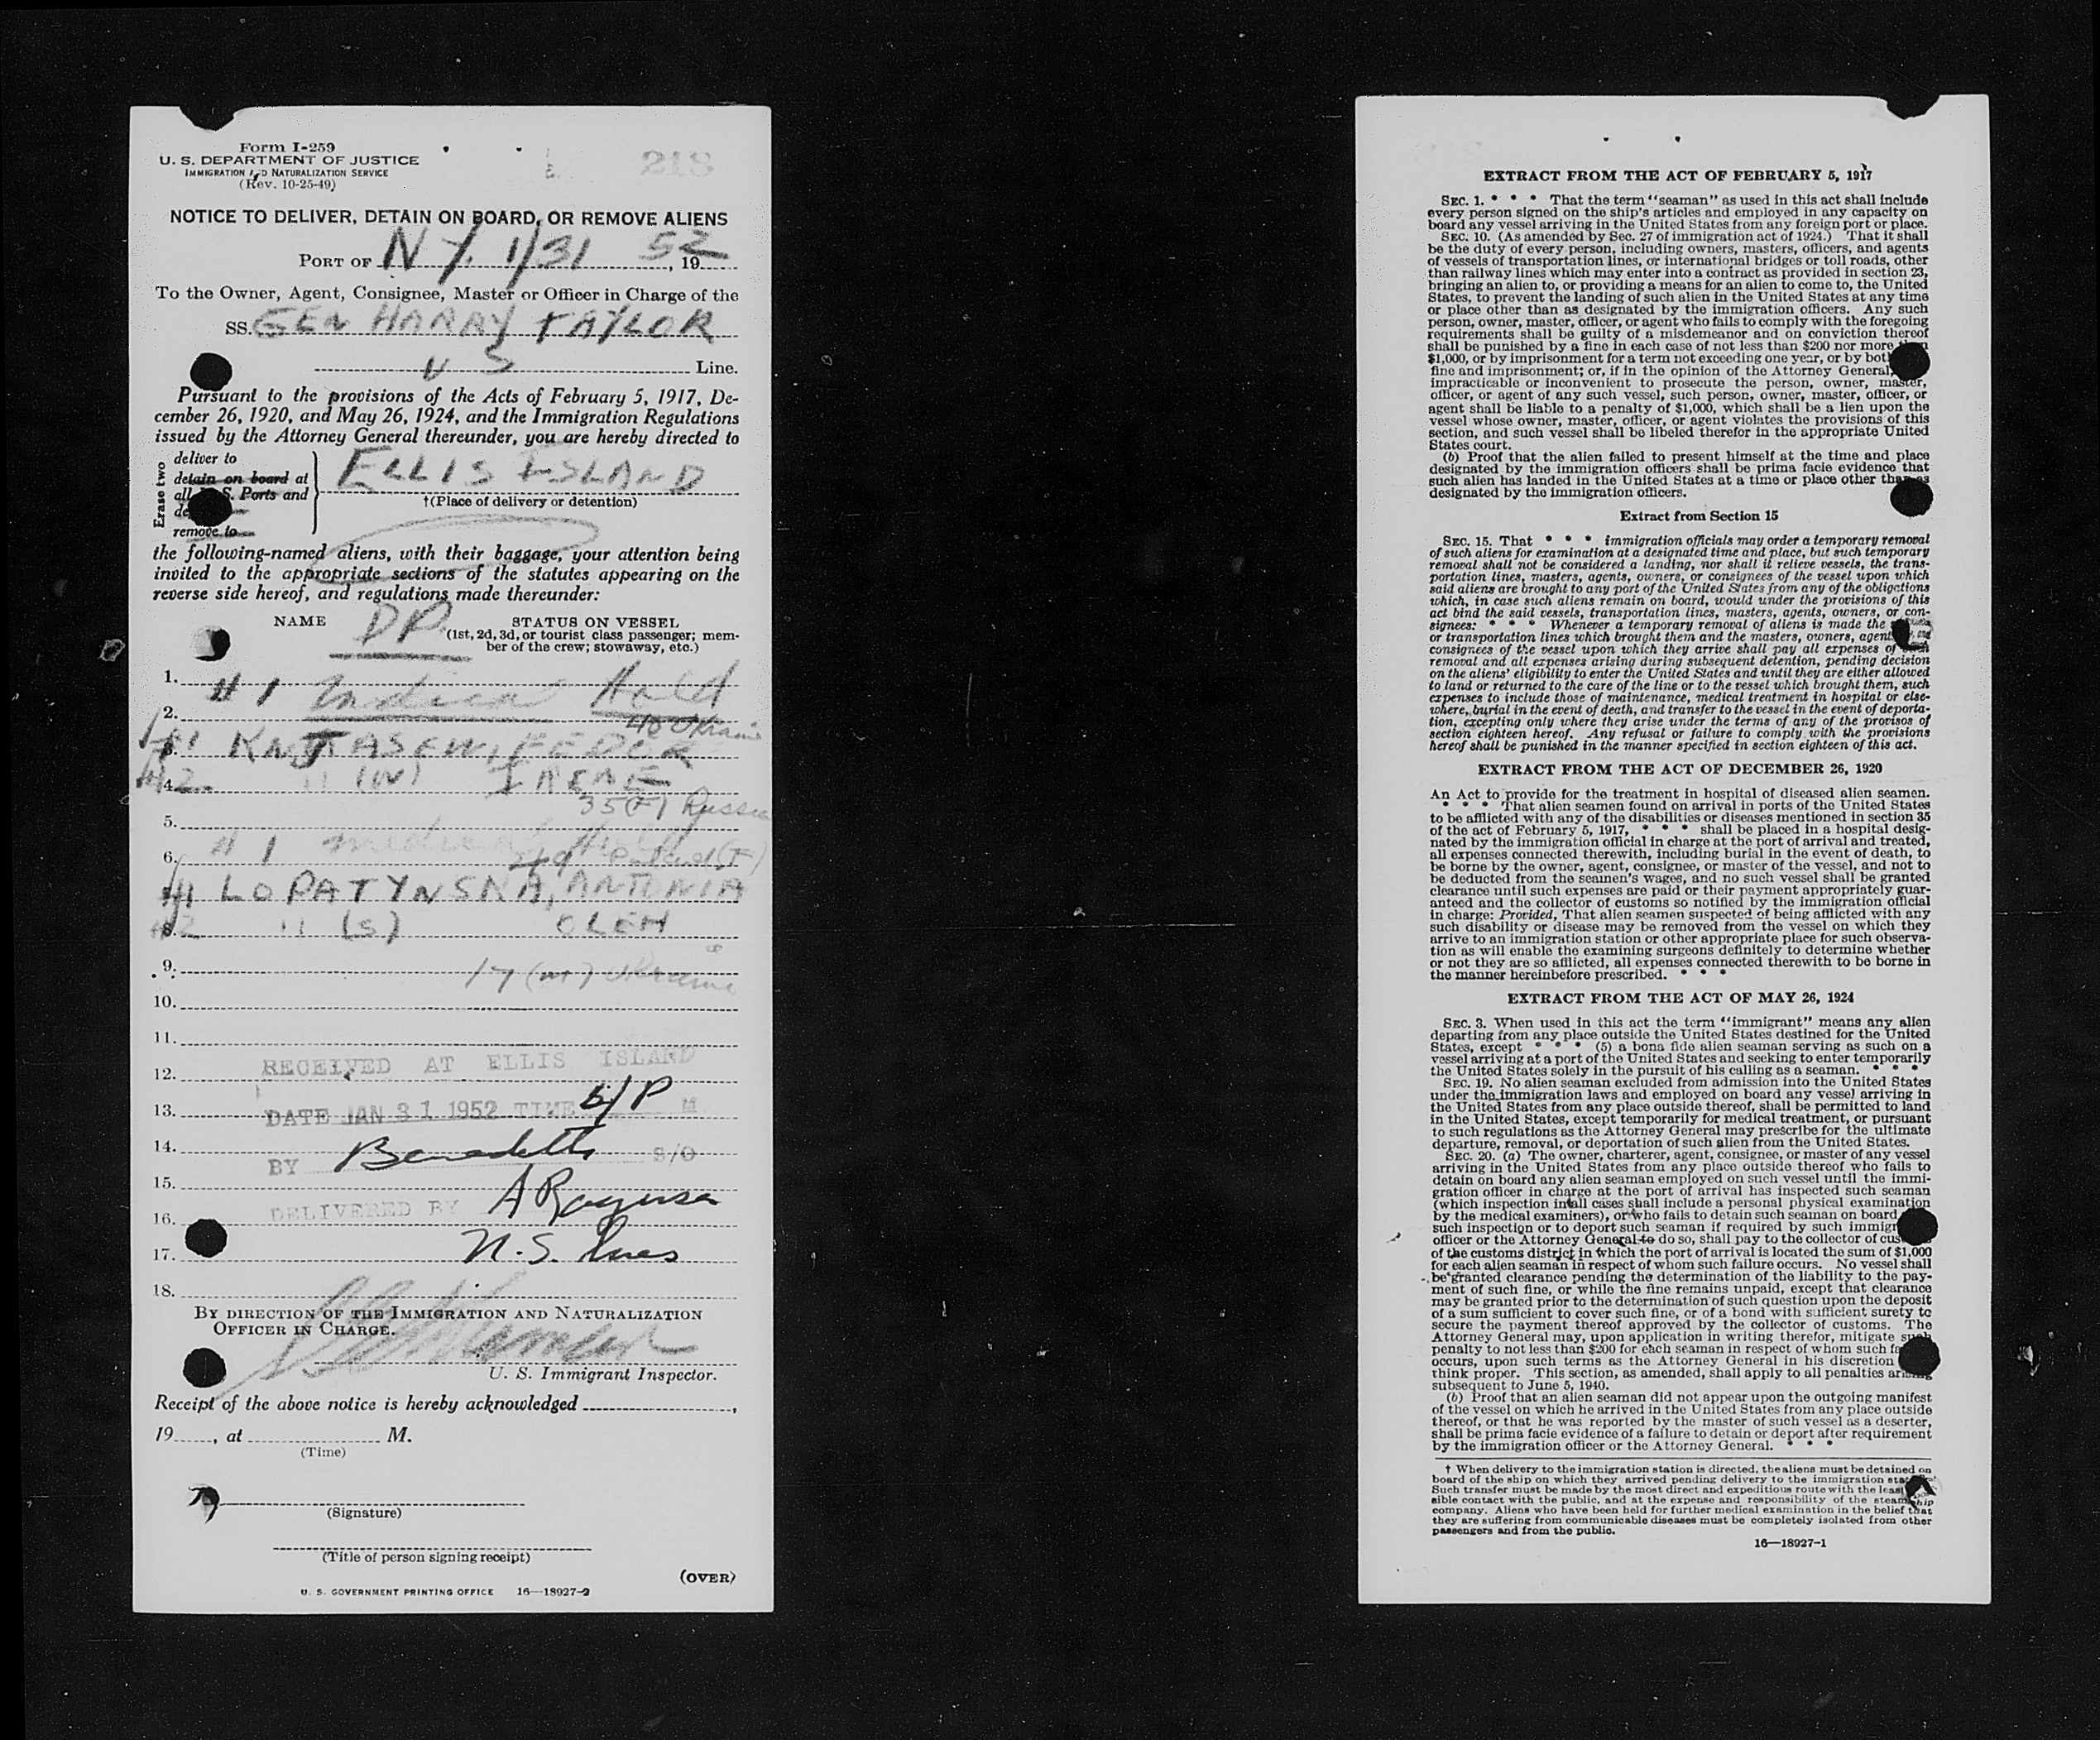 Form I-259
U. S. DEPARTMENT OF JUSTICE
IMMIGRATION AND NATURALIZATION SERVICE
(Rev. 10-25-49)
218
NOTICE TO DELIVER, DETAIN ON BOARD, OR REMOVE ALIENS
PORT OF N Y. 1/31 52, 19
To the Owner, Agent, Consignee, Master or Officer in Charge of the
SS. GEN HARRY TAYLOR
U S Line.
Pursuant to the provisions of the Acts of February 5, 1917, De-
cember 26, 1920, and May 26, 1924, and the Immigration Regulations
issued by the Attorney General thereunder, you are hereby directed to
Erase two
deliver to
detain on board at
all S. Ports and
remove to
ELLIS ISLAND
†(Place of delivery or detention)
the following-named aliens, with their baggage, your attention being
invited to the appropriate sections of the statutes appearing on the
reverse side hereof, and regulations made thereunder:
NAME DP STATUS ON VESSEL
(1st, 2d, 3d, or tourist class passenger; mem-
ber of the crew; stowaway, etc.)
1. # 1 Medical Hold
2. 40 Ukraine
3. #1 FEDOR
4. #2 " (W) IRENE
35 (F) Russia
5.
6. # 1 Medical Hold
49 Poland (F)
#1 LOPATYNSKA, ANTONIA
8. #2 " (S) OLEH
9. 17 (M) Ukraine
10.
11.
RECEIVED AT ELLIS ISLAND
12.
13. DATE JAN 31 1952 TIME P M
14.
BY S/O
15.
DELIVERED BY A Ragusa
16.
17. N. S. Lines
18.
BY DIRECTION OF THE IMMIGRATION AND NATURALIZATION
OFFICER IN CHARGE.
U. S. Immigrant Inspector.
Receipt of the above notice is hereby acknowledged ,
19 , at M.
(Time)
(Signature)
(Title of person signing receipt)
(OVER)
U. S. GOVERNMENT PRINTING OFFICE 16—18927-2
EXTRACT FROM THE ACT OF FEBRUARY 5, 1917
SEC. 1. * * * That the term "seaman" as used in this act shall include
every person signed on the ship's articles and employed in any capacity on
board any vessel arriving in the United States from any foreign port or place.
SEC. 10. (As amended by Sec. 27 of immigration act of 1924.) That it shall
be the duty of every person, including owners, masters, officers, and agents
of vessels of transportation lines, or international bridges or toll roads, other
than railway lines which may enter into a contract as provided in section 23,
bringing an alien to, or providing a means for an alien to come to, the United
States, to prevent the landing of such alien in the United States at any time
or place other than as designated by the immigration officers. Any such
person, owner, master, officer, or agent who fails to comply with the foregoing
requirements shall be guilty of a misdemeanor and on conviction thereof
shall be punished by a fine in each case of not less than $200 nor more than
$1,000, or by imprisonment for a term not exceeding one year, or by both
fine and imprisonment; or, if in the opinion of the Attorney General,
impracticable or inconvenient to prosecute the person, owner, master,
officer, or agent of any such vessel, such person, owner, master, officer, or
agent shall be liable to a penalty of $1,000, which shall be a lien upon the
vessel whose owner, master, officer, or agent violates the provisions of this
section, and such vessel shall be libeled therefor in the appropriate United
States court.
(b) Proof that the alien failed to present himself at the time and place
designated by the immigration officers shall be prima facie evidence that
such alien has landed in the United States at a time or place other than as
designated by the immigration officers.
Extract from Section 15
SEC. 15. That * * * immigration officials may order a temporary removal
of such aliens for examination at a designated time and place, but such temporary
removal shall not be considered a landing, nor shall it relieve vessels, the trans-
portation lines, masters, agents, owners, or consignees of the vessel upon which
said aliens are brought to any port of the United States from any of the obligations
which, in case such aliens remain on board, would under the provisions of this
act bind the said vessels, transportation lines, masters, agents, owners, or con-
signees: * * * Whenever a temporary removal of aliens is made the
or transportation lines which brought them and the masters, owners, agents,
consignees of the vessel upon which they arrive shall pay all expenses of such
removal and all expenses arising during subsequent detention, pending decision
on the aliens' eligibility to enter the United States and until they are either allowed
to land or returned to the care of the line or to the vessel which brought them, such
expenses to include those of maintenance, medical treatment in hospital or else-
where, burial in the event of death, and transfer to the vessel in the event of deporta-
tion, excepting only where they arise under the terms of any of the provisos of
section eighteen hereof. Any refusal or failure to comply with the provisions
hereof shall be punished in the manner specified in section eighteen of this act.
EXTRACT FROM THE ACT OF DECEMBER 26, 1920
An Act to provide for the treatment in hospital of diseased alien seamen.
* * * That alien seamen found on arrival in ports of the United States
to be afflicted with any of the disabilities or diseases mentioned in section 35
of the act of February 5, 1917, * * * shall be placed in a hospital desig-
nated by the immigration official in charge at the port of arrival and treated,
all expenses connected therewith, including burial in the event of death, to
be borne by the owner, agent, consignee, or master of the vessel, and not to
be deducted from the seamen's wages, and no such vessel shall be granted
clearance until such expenses are paid or their payment appropriately guar-
anteed and the collector of customs so notified by the immigration official
in charge: Provided, That alien seamen suspected of being afflicted with any
such disability or disease may be removed from the vessel on which they
arrive to an immigration station or other appropriate place for such observa-
tion as will enable the examining surgeons definitely to determine whether
or not they are so afflicted, all expenses connected therewith to be borne in
the manner hereinbefore prescribed. * * *
EXTRACT FROM THE ACT OF MAY 26, 1924
SEC. 3. When used in this act the term "immigrant" means any alien
departing from any place outside the United States destined for the United
States, except * * * (5) a bona fide alien seaman serving as such on a
vessel arriving at a port of the United States and seeking to enter temporarily
the United States solely in the pursuit of his calling as a seaman. * * * *
SEC. 19. No alien seaman excluded from admission into the United States
under the immigration laws and employed on board any vessel arriving in
the United States from any place outside thereof, shall be permitted to land
in the United States, except temporarily for medical treatment, or pursuant
to such regulations as the Attorney General may prescribe for the ultimate
departure, removal, or deportation of such alien from the United States.
SEC. 20. (a) The owner, charterer, agent, consignee, or master of any vessel
arriving in the United States from any place outside thereof who fails to
detain on board any alien seaman employed on such vessel until the immi-
gration officer in charge at the port of arrival has inspected such seaman
(which inspection in all cases shall include a personal physical examination
by the medical examiners), or who fails to detain such seaman on board
such inspection or to deport such seaman if required by such immigration
officer or the Attorney General to do so, shall pay to the collector of customs
of the customs district in which the port of arrival is located the sum of $1,000
for each alien seaman in respect of whom such failure occurs. No vessel shall
be granted clearance pending the determination of the liability to the pay-
ment of such fine, or while the fine remains unpaid, except that clearance
may be granted prior to the determination of such question upon the deposit
of a sum sufficient to cover such fine, or of a bond with sufficient surety to
secure the payment thereof approved by the collector of customs. The
Attorney General may, upon application in writing therefor, mitigate such
penalty to not less than $200 for each seaman in respect of whom such failure
occurs, upon such terms as the Attorney General in his discretion
think proper. This section, as amended, shall apply to all penalties arising
subsequent to June 5, 1940.
(b) Proof that an alien seaman did not appear upon the outgoing manifest
of the vessel on which he arrived in the United States from any place outside
thereof, or that he was reported by the master of such vessel as a deserter,
shall be prima facie evidence of a failure to detain or deport after requirement
by the immigration officer or the Attorney General. * * *
† When delivery to the immigration station is directed, the aliens must be detained on
board of the ship on which they arrived pending delivery to the immigration station.
Such transfer must be made by the most direct and expeditious route with the least
sible contact with the public, and at the expense and responsibility of the steamship
company. Aliens who have been held for further medical examination in the belief that
they are suffering from communicable diseases must be completely isolated from other
passengers and from the public.
16—18927-1